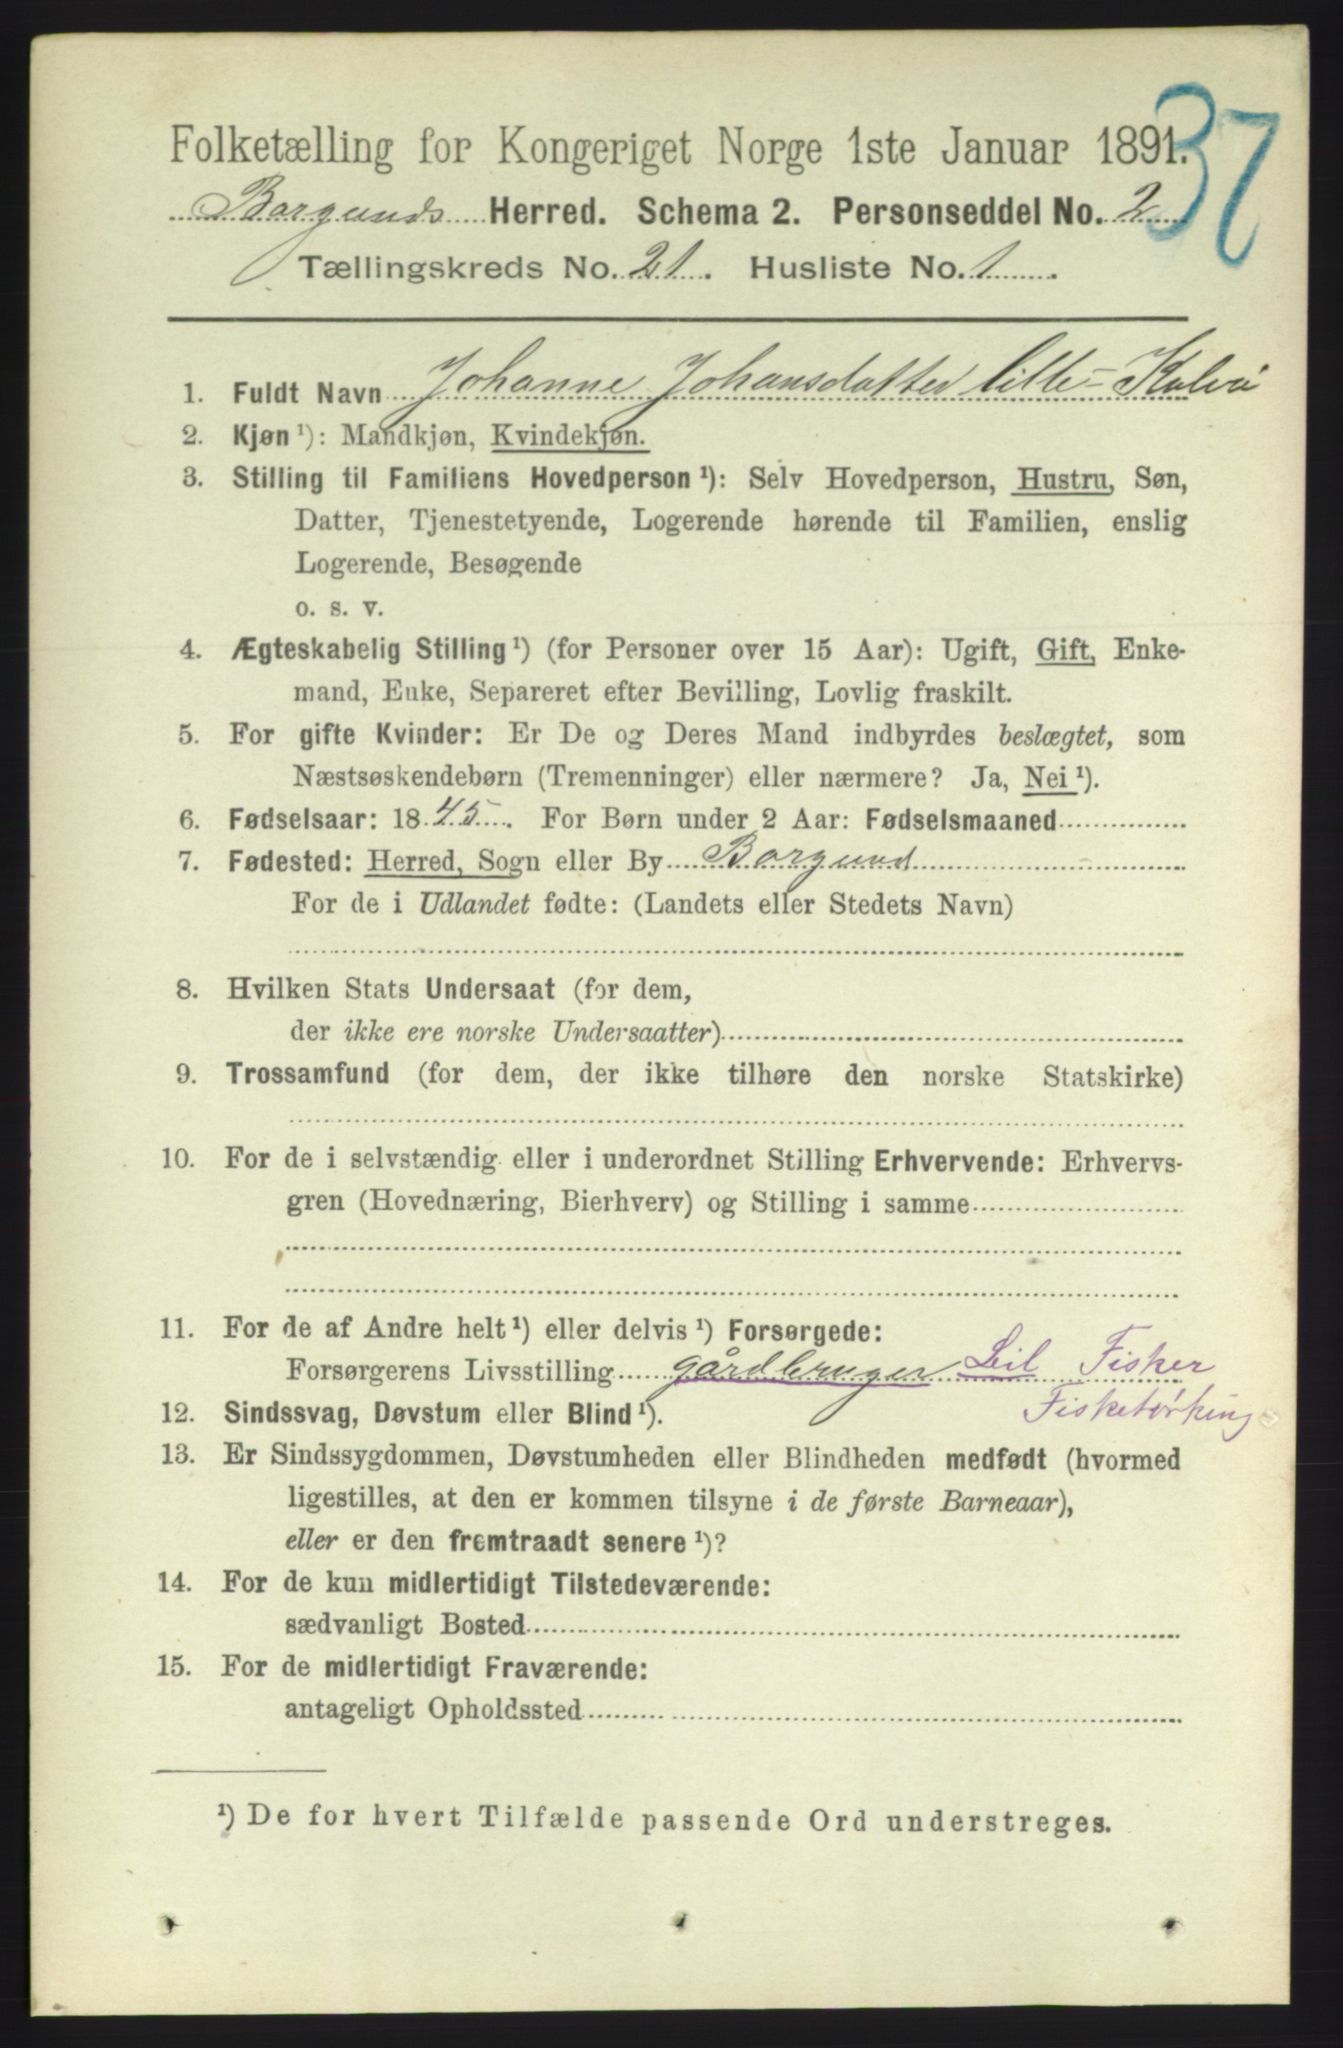 37
Folketælling for Kongeriget Norge 1ste Januar 1891.
Borgunds Herred. Schema 2. Personseddel No. 2
Tællingskreds No. 21. Husliste No. 1.
1. Fuldt Navn Johanne Johansdatter lille-Kalvø
2. Kjøn ¹): Mandkjøn, Kvindekjøn.
3. Stilling til Familiens Hovedperson ¹): Selv Hovedperson, Hustru, Søn,
Datter, Tjenestetyende, Logerende hørende til Familien, enslig
Logerende, Besøgende
o. s. v.
4. Ægteskabelig Stilling ¹) (for Personer over 15 Aar): Ugift, Gift, Enke-
mand, Enke, Separeret efter Bevilling, Lovlig fraskilt.
5. For gifte Kvinder: Er De og Deres Mand indbyrdes beslægtet, som
Næstsøskendebørn (Tremenninger) eller nærmere? Ja, Nei ¹).
6. Fødselsaar: 1845. For Børn under 2 Aar: Fødselsmaaned
7. Fødested: Herred, Sogn eller By Borgund
For de i Udlandet fødte: (Landets eller Stedets Navn)
8. Hvilken Stats Undersaat (for dem,
der ikke ere norske Undersaatter)
9. Trossamfund (for dem, der ikke tilhøre den norske Statskirke)
10. For de i selvstændig eller i underordnet Stilling Erhvervende: Erhvervs-
gren (Hovednæring, Bierhverv) og Stilling i samme
11. For de af Andre helt ¹) eller delvis ¹) Forsørgede:
Forsørgerens Livsstilling gårdbruger Leil Fisker
Fisketørking
12. Sindssvag, Døvstum eller Blind ¹).
13. Er Sindssygdommen, Døvstumheden eller Blindheden medfødt (hvormed
ligestilles, at den er kommen tilsyne i de første Barneaar),
eller er den fremtraadt senere ¹)?
14. For de kun midlertidigt Tilstedeværende:
sædvanligt Bosted
15. For de midlertidigt Fraværende:
antageligt Opholdssted
¹) De for hvert Tilfælde passende Ord understreges.